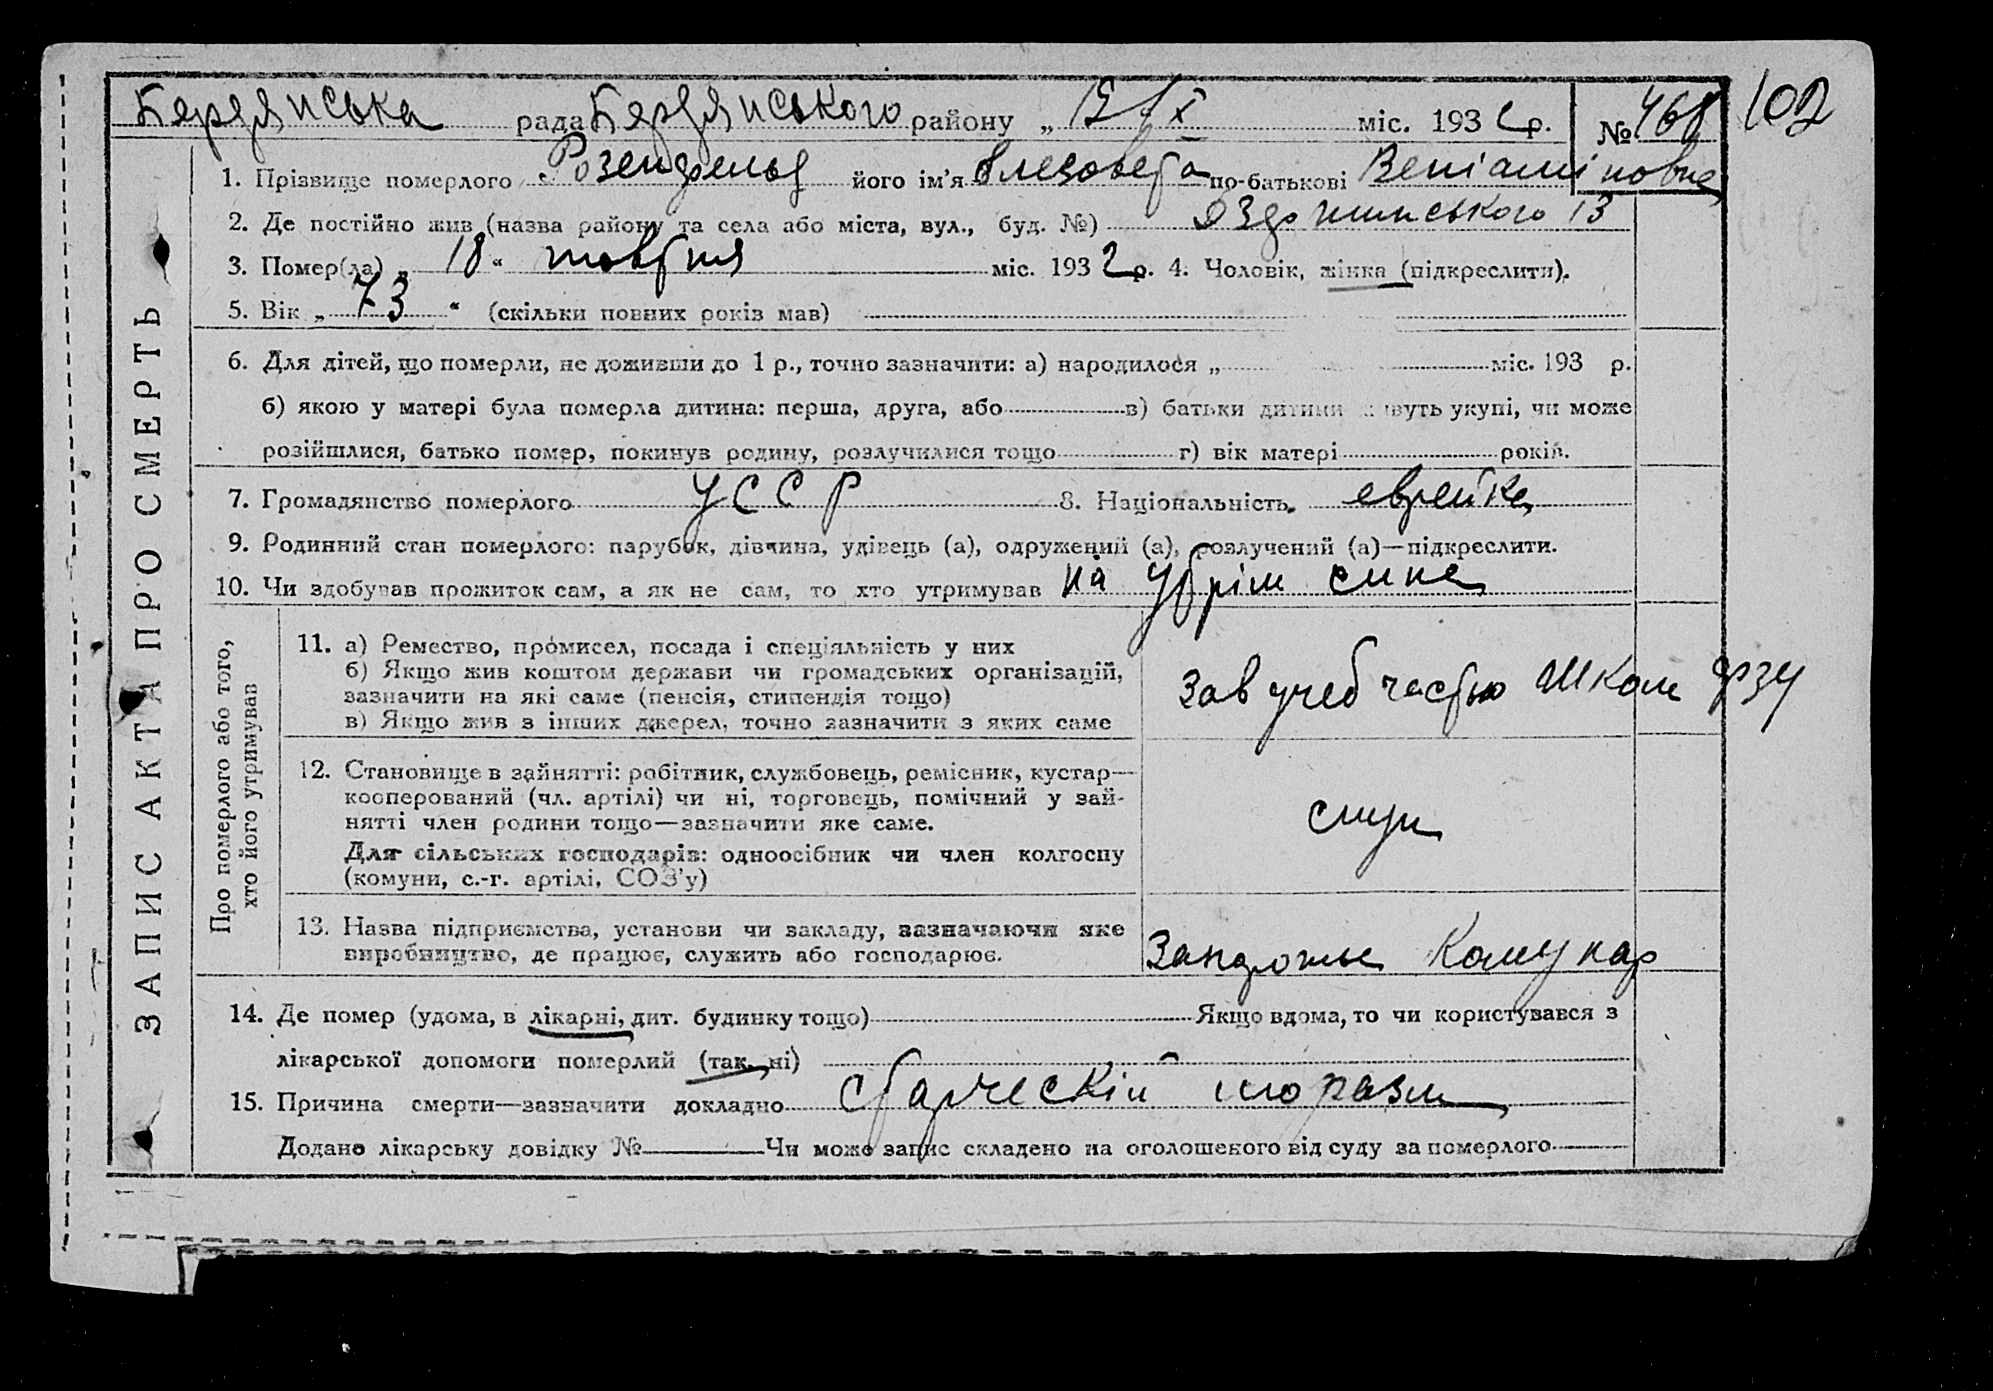 Бердянська рада Бердянського району „ 19/X міс. 1932 р. № 468 102
1. Прізвище померлого Розенфельд його ім'я Елезовета по-батькові Веніамі новна
2. Де постійно жив (назва району та села або міста, вул., буд. №) Дзержинського 13
3. Помер(ла) „ 18 “ жовтня міс. 1932 р. 4. Чоловік, жінка (підкреслити).
5. Вік „ 73 “ (скільки повних років мав)
6. Для дітей, що померли, не доживши до 1 р., точно зазначити: а) народилося „ міс. 193 р.
б) якою у матері була померла дитина: перша, друга, або в) батьки дитини живуть укупі, чи може
розійшлися, батько помер, покинув родину, розлучилися тощо г) вік матері років.
7. Громадянство померлого УССР 8. Національність. еврейка
9. Родинний стан померлого: парубок, дівчина, удівець (а), одружений (а), розлучений (а)—підкреслити.
10. Чи здобував прожиток сам, а як не сам, то хто утримував на утрім сина
11. а) Ремество, промисел, посада і спеціяльність у них
б) Якщо жив коштом держави чи громадських організацій,
зазначити на які саме (пенсія, стипендія тощо)
в) Якщо жив з інших джерел, точно зазначити з яких саме
Зав учеб частью Школи ФЗУ
12. Становище в зайнятті: робітник, службовець, ремісник, кустар—
кооперований (чл. артілі) чи ні, торговець, помічний у зай-
нятті член родини тощо—зазначити яке саме.
Для сільських господарів: одноосібник чи член колгоспу
(комуни, с.-г. артілі, СОЗ'у)
служ
13. Назва підприємства, установи чи закладу, зазначаючи яке
виробництво, де працює, служить або господарює.
Запорожье Комунар
14. Де помер (удома, в лікарні, дит. будинку тощо) Якщо вдома, то чи користувався з
лікарської допомоги померлий (так, ні)
15. Причина смерти—зазначити докладно старческій маразм
Додано лікарську довідку № Чи може запис складено на оголошеного від суду за померлого
ЗАПИС АКТА ПРО СМЕРТЬ
Про померлого або того,
хто його утримував